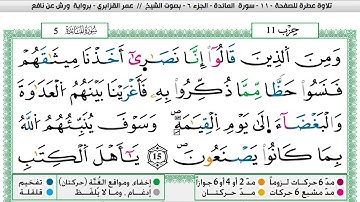 تلاوة عطرة للصفحة ١١٠ - سورة المائدة - الجزء ٦ - بصوت الشيخ // عمر القزابري - برواية ورش عن نافع
حِزْب 11
5
وَمِنَ ٱلَّذِينَ قَالُوٓاْ إِنَّا نَصَٰرَىٰٓ أَخَذْنَا مِيثَٰقَهُمْ
فَنَسُواْ حَظّٗا مِّمَّا ذُكِّرُواْ بِهِۦ فَأَغْرَيْنَا بَيْنَهُمُ ٱلْعَدَاوَةَ
وَٱلْبَغْضَآءَ ا۪لَىٰ يَوْمِ ٱلْقِيَٰمَةِ وَسَوْفَ يُنَبِّئُهُمُ ٱللَّهُ
بِمَا كَانُواْ يَصْنَعُونَ 15 يَٰٓأَهْلَ ٱلْكِتَٰبِ
مد 6 حركات لزوماً
مد 2 أو 4 أو 6 جوازاً
إخفاء، ومواقع الغُنَّة (حركتان)
تفخيم
مد مشبع 6 حركات
مد حركتان
إدغام، وما لا يُلفظ
قلقلة